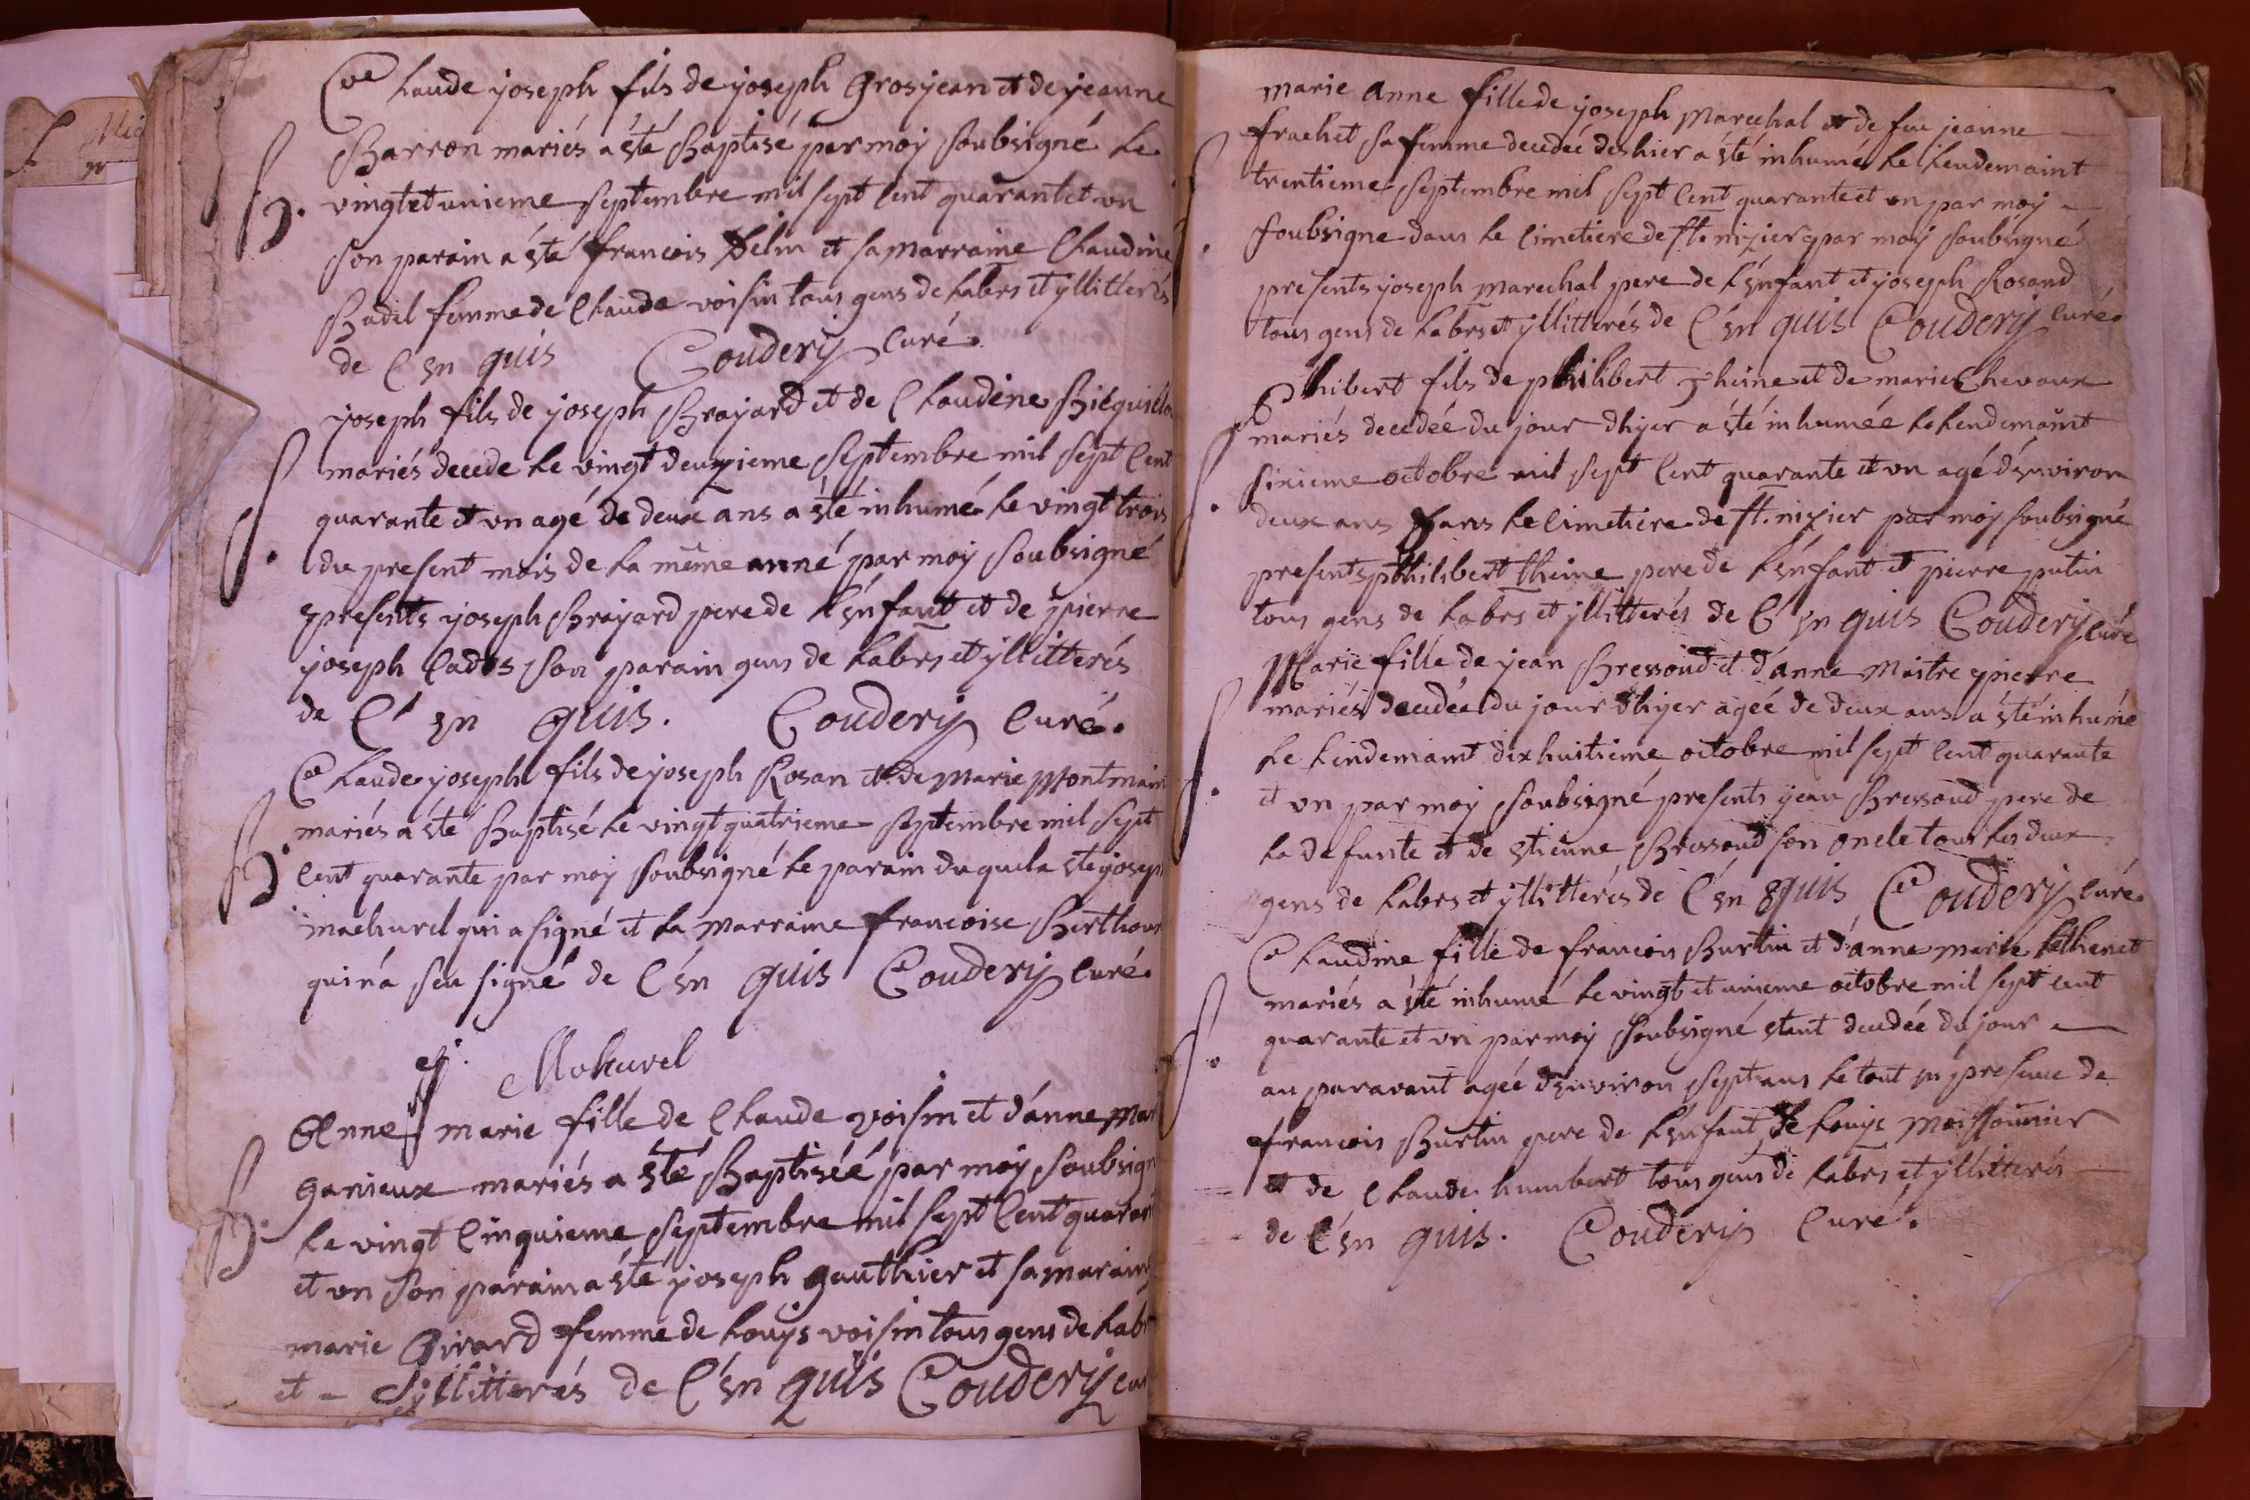 Claude joseph fils de joseph Grosjean et de jeanne
Barron mariés a été Baptisé par moy soubsigné le
B. vingtetunieme septembre mil sept Cent quarantet un
son parain a été francois Velin et sa marraine Claudine
Badil femme de Claude voisin tous gens de labrs et yllitterés
de C'en quis Coudery Curé.
joseph fils de joseph Brayard et de Claudine
S. mariés decede le vingt deuxieme septembre mil sept Cent
quarante et un agé de deux ans a été inhumé le vingt trois
du present mois de la même anné par moy soubsigné
presents joseph Brayard pere de l'énfant et de pierre
joseph Cados son parain gens de labrs et yllitterés
de C'en quis. Coudery Curé.
Claude joseph fils de joseph Rosan et de Marie Montmain
B. mariés a été Baptisé le vingt quatrieme septembre mil sept
Cent quarante par moy soubsigné le parain du quel a eté joseph
machurel qui a signé et la marraine francoise
qui n'a seu signé de C'én quis Coudery Curé.
J. Mohurel
Anne marie fille de Claude voisin et d'anne Mari
ganieux mariés a été Baptiséé par moy soubsign
B. le vingt Cinquieme septembre mil sept Cent quarant
et un son parain a été joseph gauthier et sa maraine
marie Girard femme de Louys voisin tous gens de labr
et - yllitterés de C'én quis Coudery cur
marie anne fille de joseph Marechal et de fue jeanne
frachet sa femme decedeé des hier a été inhumé le lendemaint
S. trentieme septembre mil sept Cent quarante et un par moy
soubsigne dans le Cimetiere de st. nizier par moy soubsigné
presents joseph marechal pere de l'énfant et joseph Rosand
tous gens de labrs et yllitterés de C'én quis Coudery Curé.
Philibert fils de philibert theine et de marie Chevaux
S. mariés decedéé du jour dhyer a été inhumée le lendemaint
sixieme octobre mil sept Cent quarante et un agé d'énviron
deux ans dans le Cimetiere de st. nizier par moy soubsigné
presents philibert theine pere de l'énfant et pierre putin
tous gens de labrs et yllitterés de C'én quis Coudery Curé
Marie fille de jean Bressoud et d'anne Maitre pierre
S. mariés decedéé du jour dhyer agéé de deux ans a été inhumé
le lendemaint dixhuitieme octobre mil sept Cent quarante
et un par moy soubsigné presents jean Bressoud pere de
la defunte et de etienne Bressoud son oncle tous les deux
gens de labrs et yllitterés de C'én quis Coudery Curé.
Claudine fille de francois Burtin et d'anne marie
S. mariés a été inhumé le vingt et unieme octobre mil sept cent
quarante et un par moy soubsigné etent decedéé du jour
au paravant agéé d'énviron sept ans le tout en presence de
francois Burtin pere de l'énfant de louys Moissonnier
et de Claude humbert tous gens de labrs et yllitterés
de C'én quis. Coudery Curé.